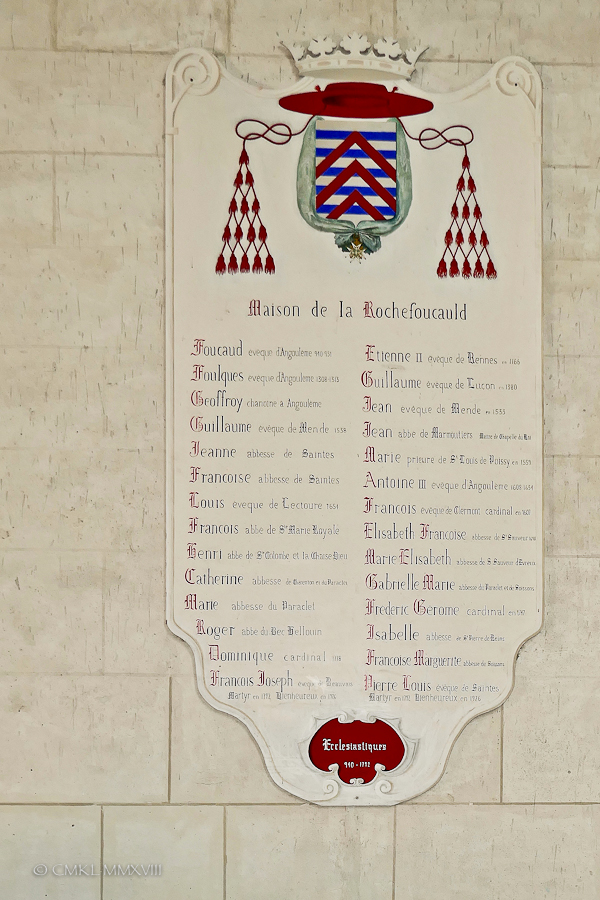 Maison de la Rochefoucauld
Foucaud evêque d'Angoulême
Foulques evêque d'Angoulême 1308-1313
Geoffroy chanoine a Angoulême
Guillaume evêque de Mende
Jeanne abbesse de Saintes
Francoise abbesse de Saintes
Louis évêque de Lectoure
Francois abbé de Ste Marie Royale
Henri abbé de Ste Colombe et la Chaise Dieu
Catherine abbesse de et du Paraclet
Marie abbesse du Paraclet
Roger abbé du Bec Hellouin
Dominique cardinal
Francois Joseph evêque de Beauvais
Martyr en Bienheureux en
Etienne II evêque de Rennes en 1166
Guillaume évêque de Luçon en 1380
Jean evêque de Mende en
Jean abbé de Marmoutiers Maitre de Chapelle du Roi
Marie prieure de St Louis de Poissy en
Antoine III evêque d'Angoulême
Francois evêque de Clermont cardinal en
Elisabeth Francoise abbesse de St Sauveur
Marie Elisabeth abbesse de S. Sauveur d'Evreux
Gabrielle Marie abbesse du Paraclet et de Soissons
Frederic Gerome cardinal en
Isabelle abbesse de St Pierre de
Francoise Marguerite abbesse de Soissons
Pierre Louis evêque de Saintes
Martyr en Bienheureux en 1926
Ecclesiastiques
940 - 1792
© CMKL MMXVIII